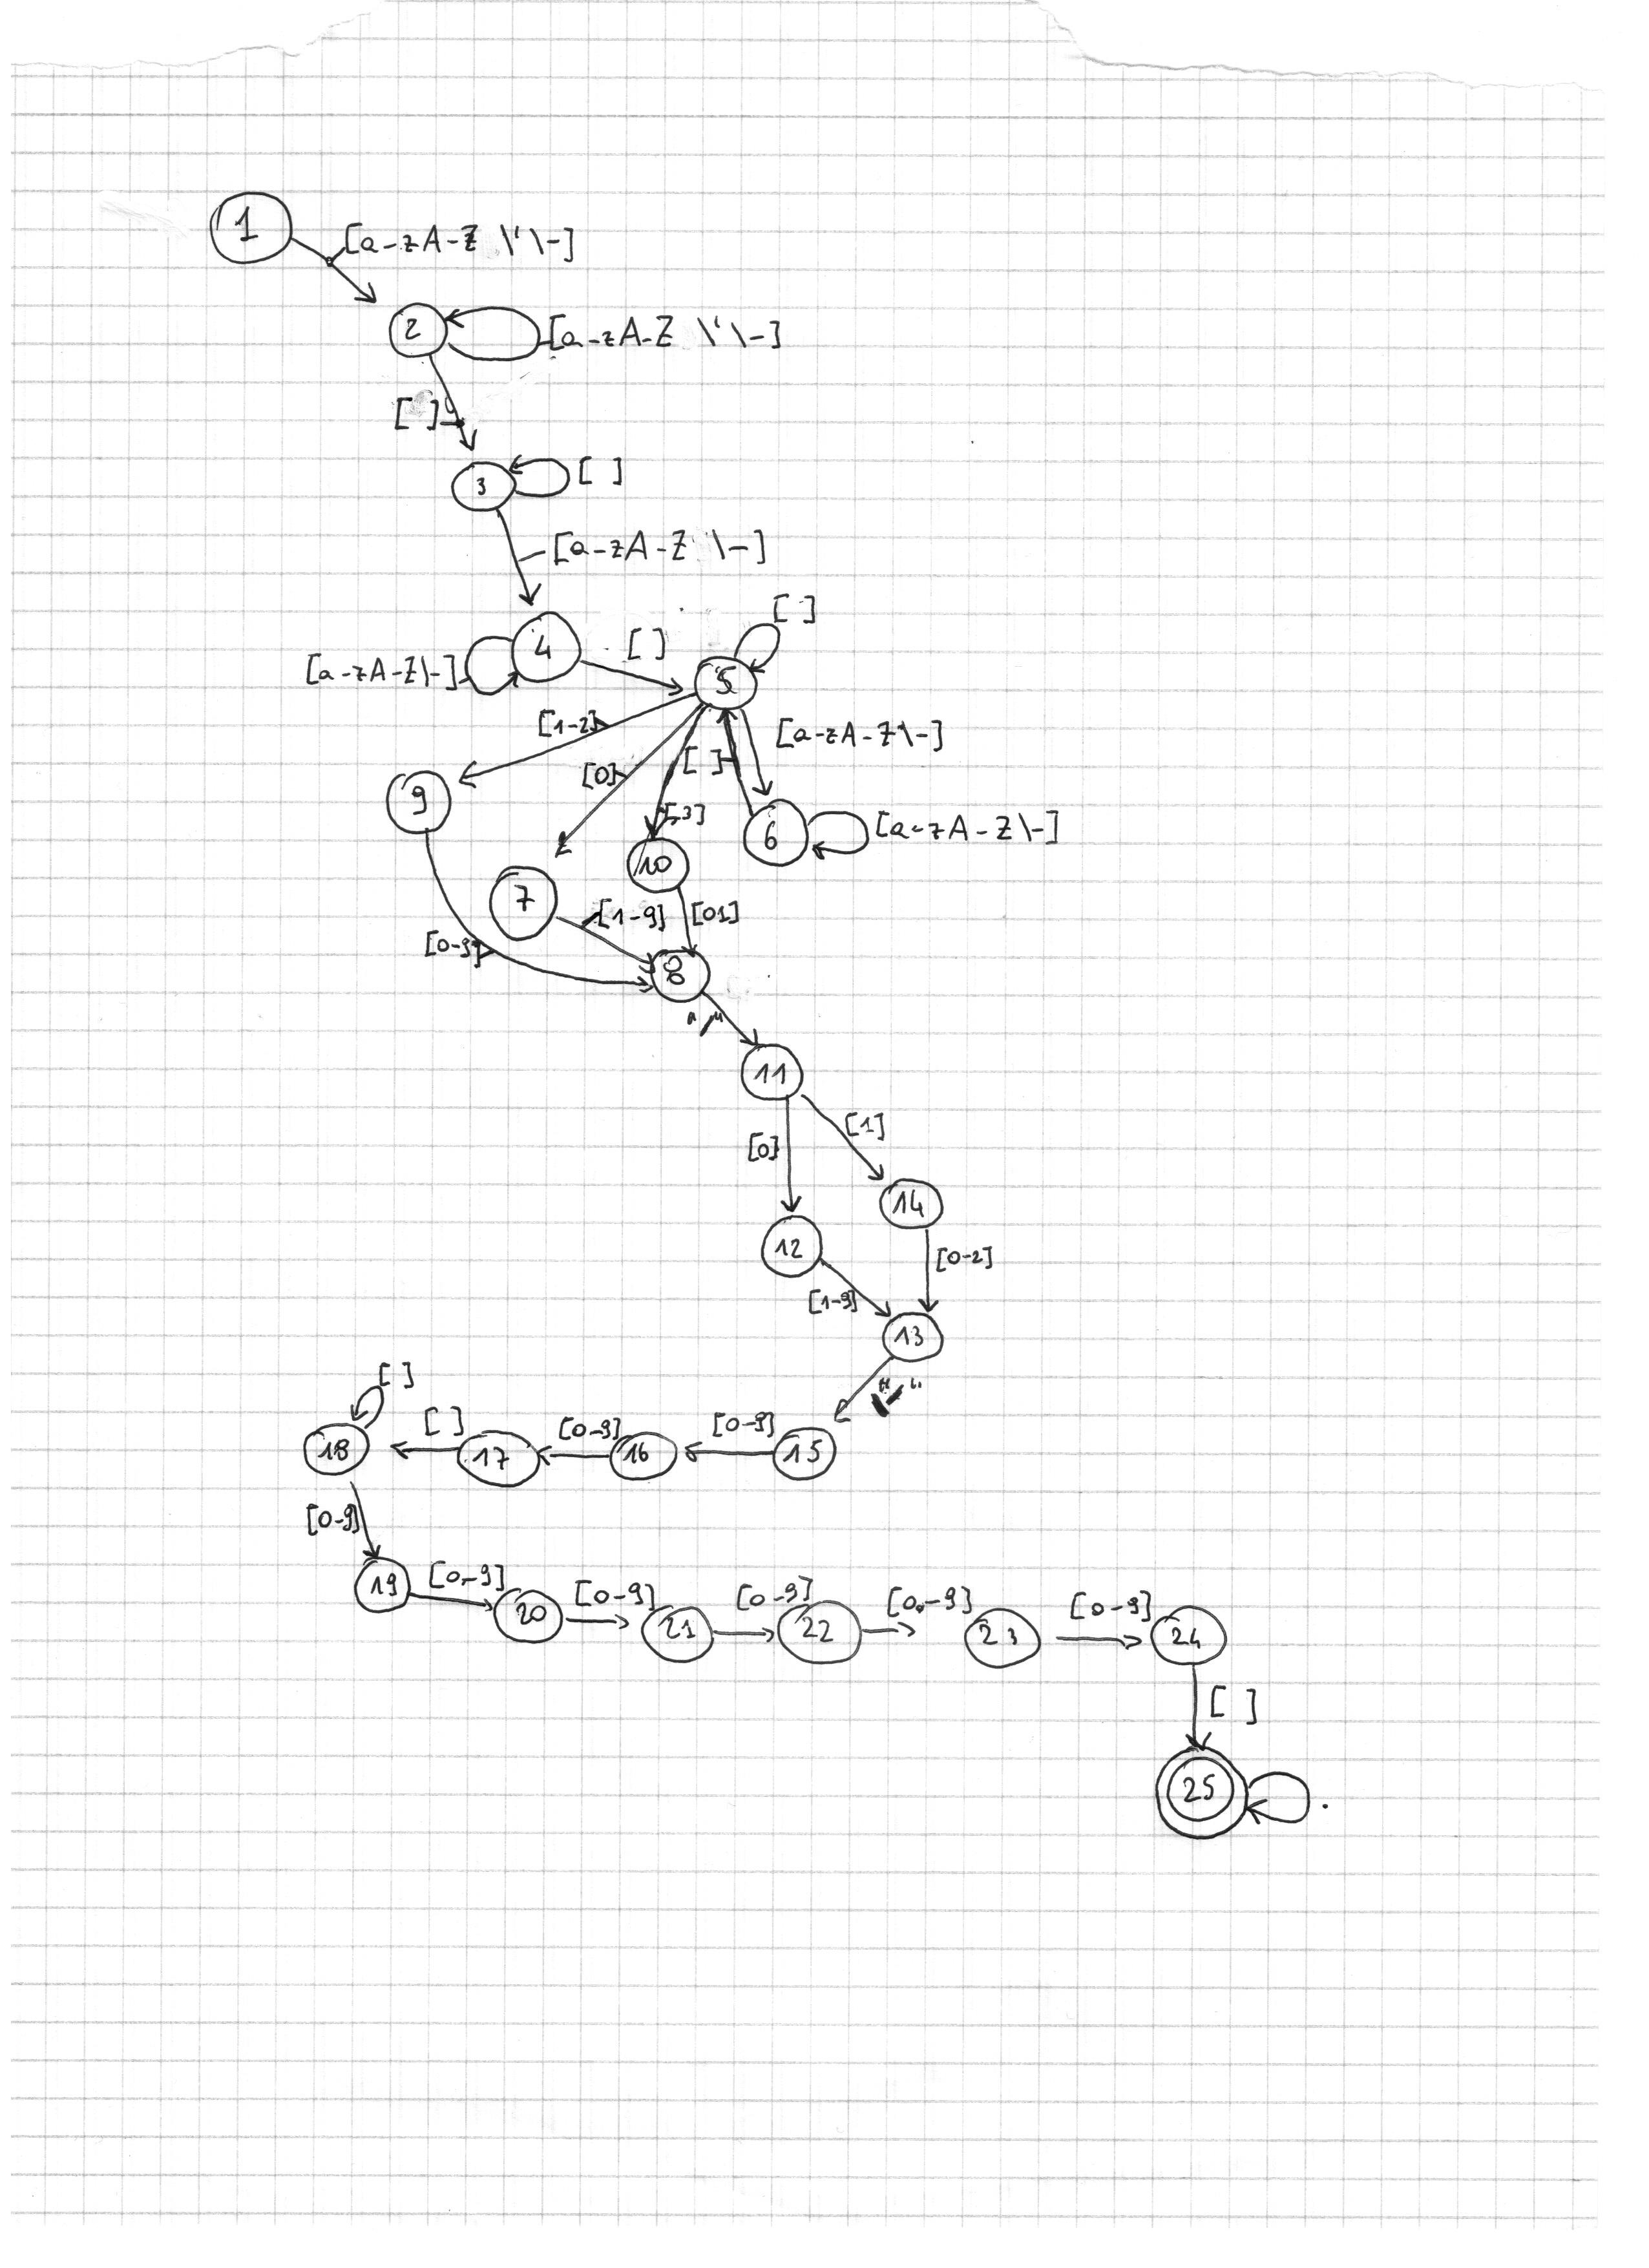 1
[a-zA-Z \'\-]
2
[a-zA-Z \'\-]
[ ]
3
[ ]
[a-zA-Z \-]
4
[ ]
[ ]
[a-zA-Z\-]
5
[1-2]
[0]
[ ]
[a-zA-Z\-]
9
[3]
6
[a-zA-Z\-]
10
7
[1-9]
[01]
[0-9]
8
"/"
11
[0]
[1]
14
12
[0-2]
[1-9]
13
[ ]
18
[ ]
17
[0-9]
16
[0-9]
15
[0-9]
19
[0-9]
20
[0-9]
21
[0-9]
22
[0-9]
23
[0-9]
24
[ ]
25
.